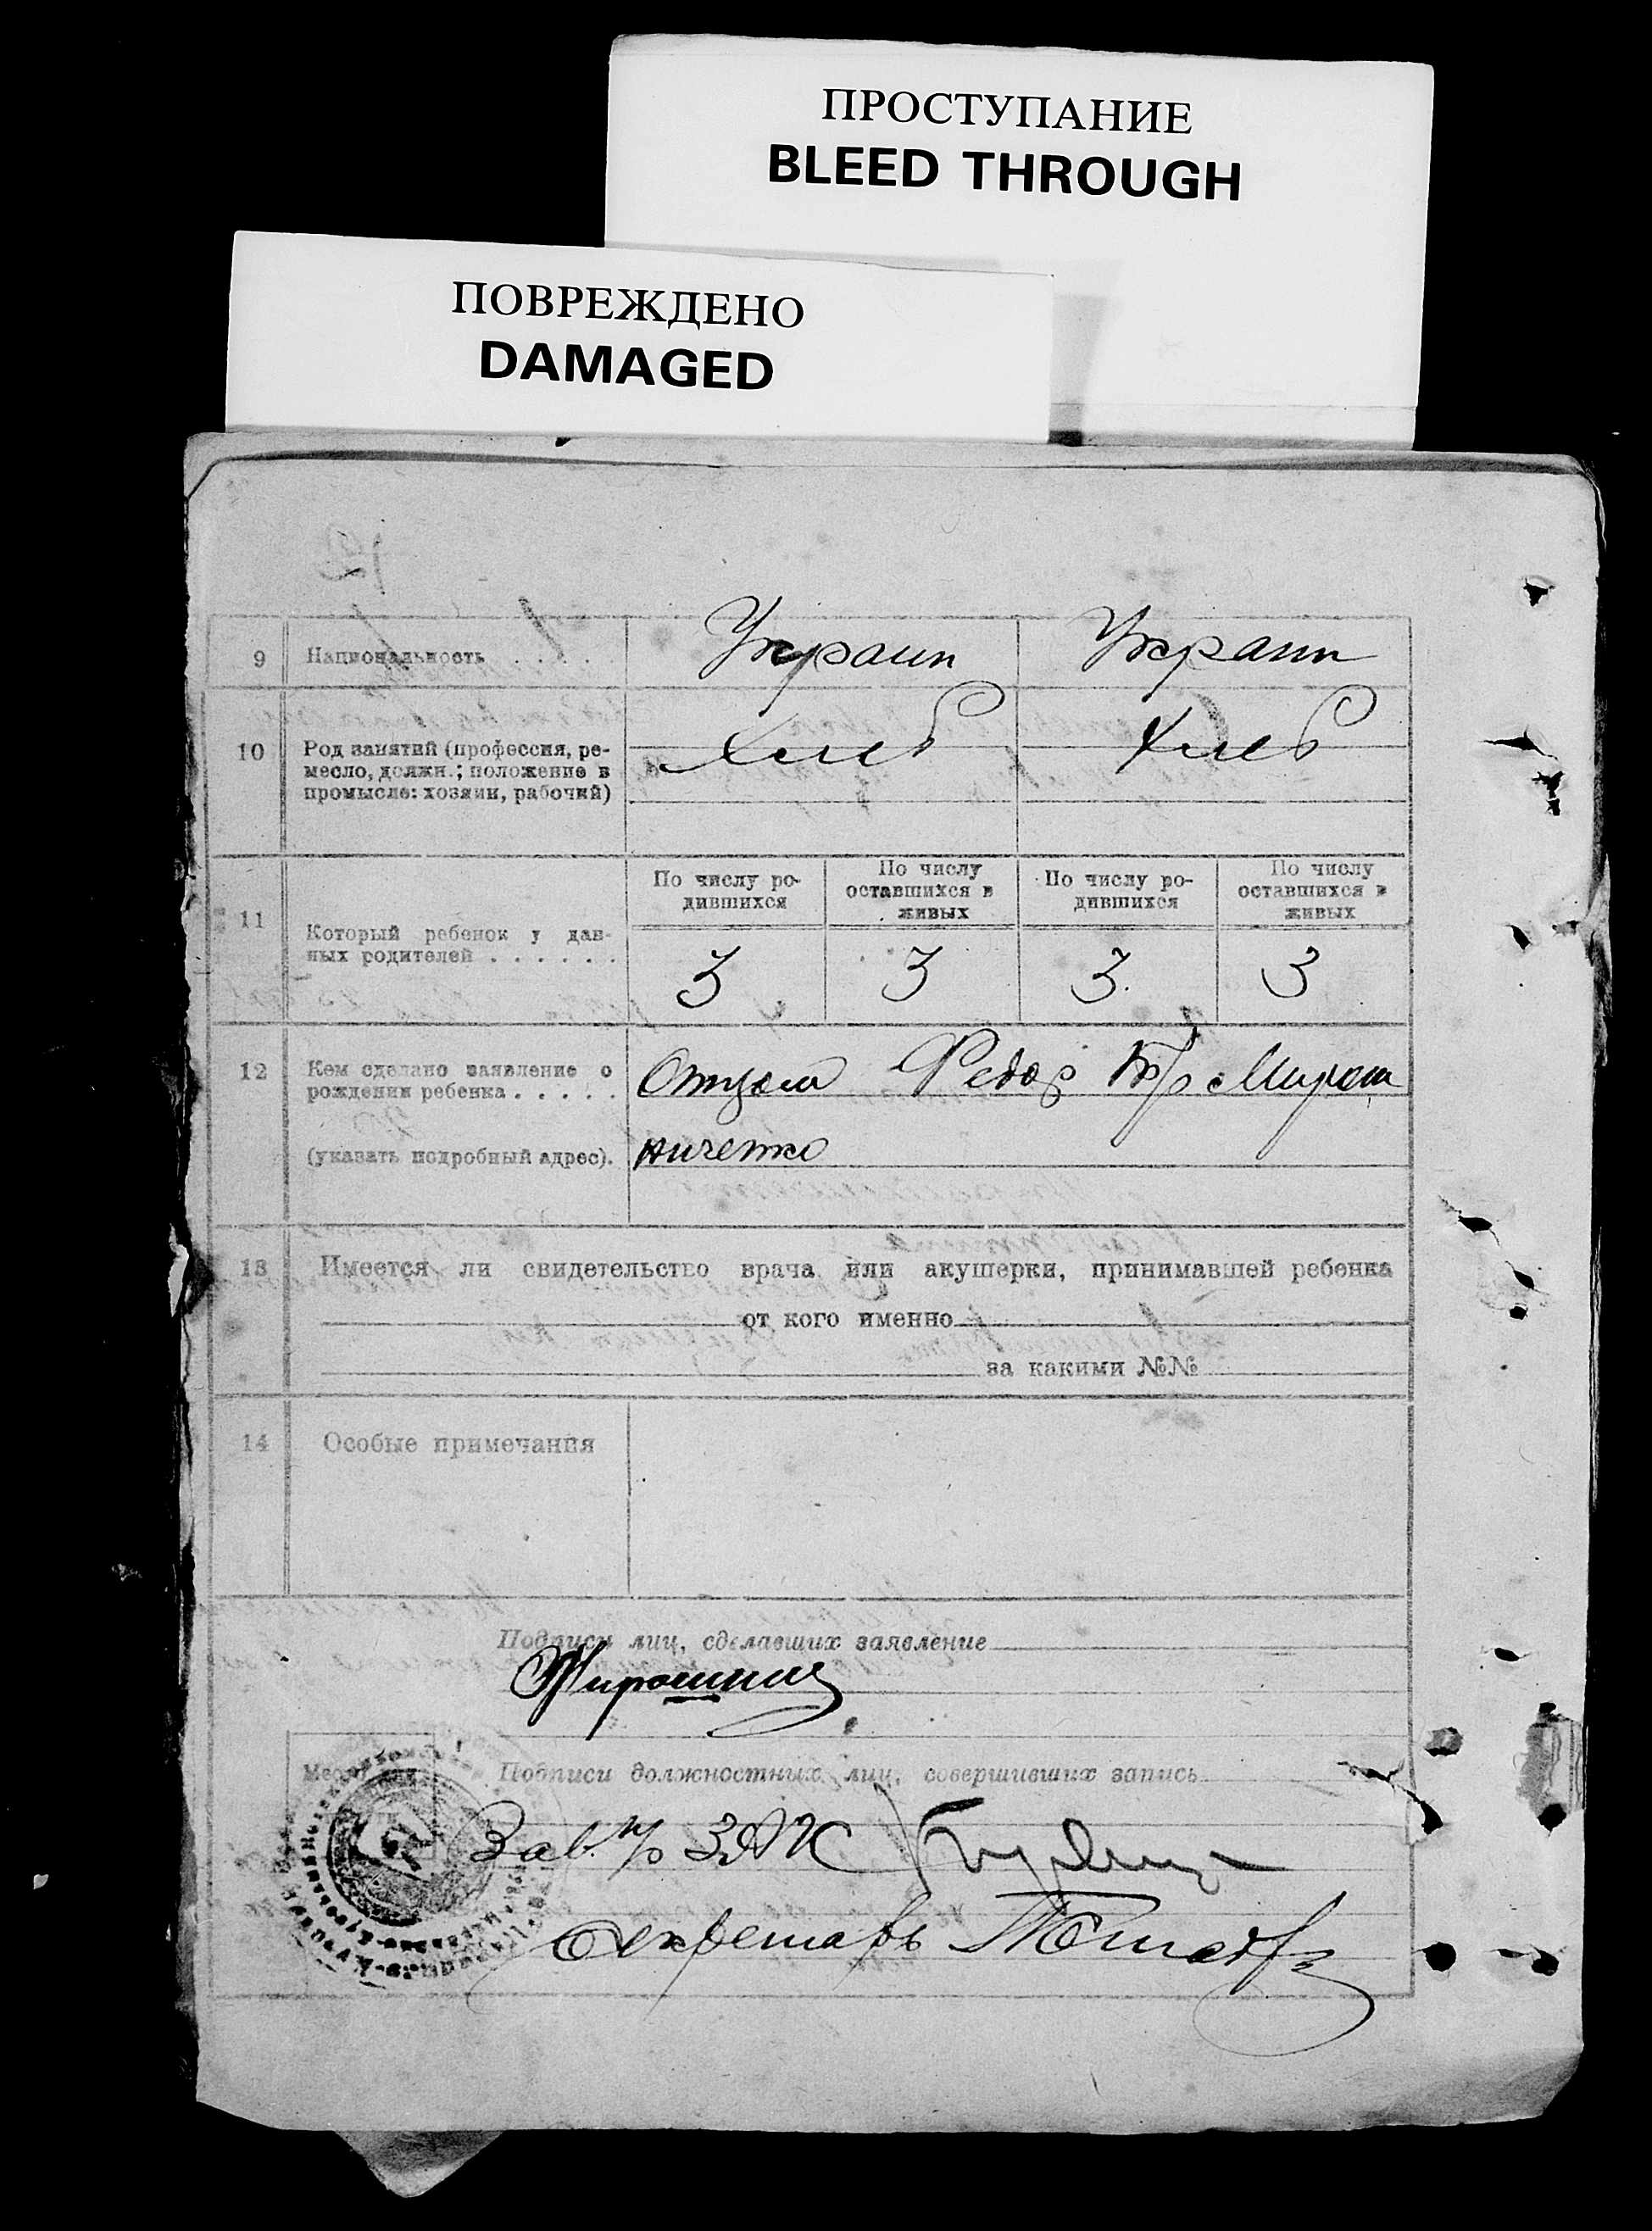 ПРОСТУПАНИЕ
BLEED THROUGH
ПОВРЕЖДЕНО
DAMAGED
9 Национальность . . . . Украин Украин
10 Род занятий (профессия, ре-
месло, должн.; положение в
промысле: хозяин, рабочий)
Хлеб Хлеб
11 Который ребенок у дан-
ных родителей . . . . . .
По числу ро-
дившихся
По числу
оставшихся в
живых
По числу ро-
дившихся
По числу
оставшихся в
живых
3 3 3. 3
12 Кем сделано заявление о
рождении ребенка . . . . .
(указать подробный адрес).
Отцем Федор Мирош
ниченко
13 Имеется ли свидетельство врача или акушерки, принимавшей ребенка
от кого именно
за какими №№
14 Особые примечания
Подписи лиц, сделавших заявление
Подписи должностных лиц, совершивших запись
Зав. ЗАГС
Секретарь